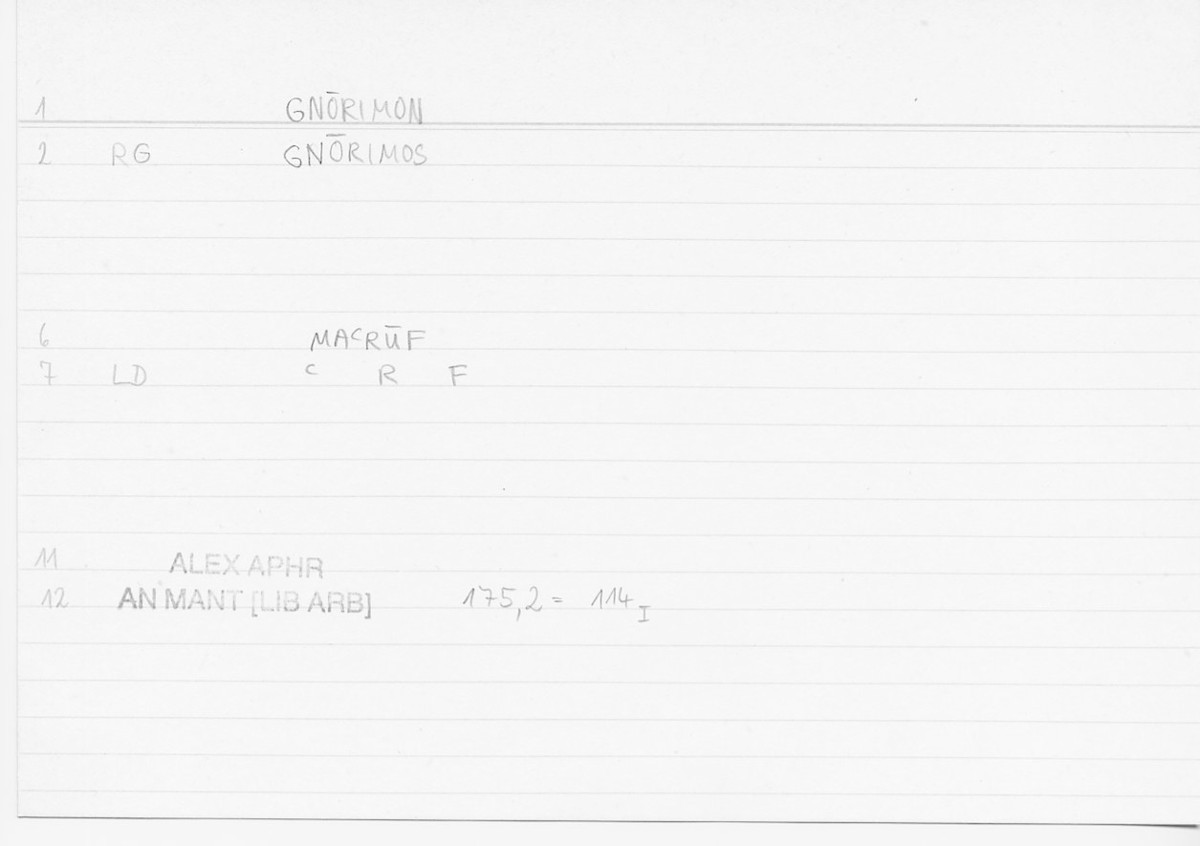 1 GNŌRIMON
2 RG GNŌRIMOS
6 MAᶜRŪF
7 LD ᶜ R F
11 ALEX APHR
12 AN MANT [LIB ARB] 175,2 = 114 I